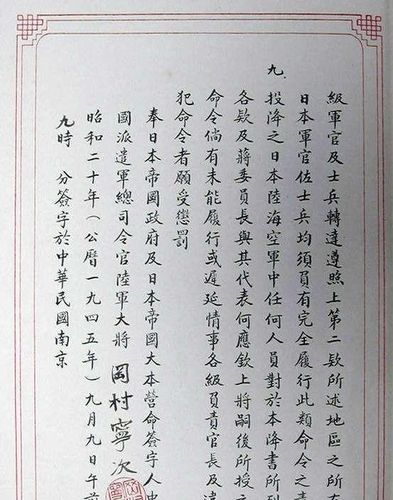 級軍官及士兵轉達遵照上第二款所述地區之所有
日本軍官佐士兵均須負有完全履行此類命令之責
九.
投降之日本陸海空軍中任何人員對於本降書所列
各款及蔣委員長與其代表何應欽上將嗣後所授之
命令倘有未能履行或遲延情事各級負責官長及違
犯命令者願受懲罰
奉日本帝國政府及日本帝國大本營命簽字人中
國派遣軍總司令官陸軍大將 岡村寧次
昭和二十年(公曆一九四五年)九月九日午前
九時 分簽字於中華民國南京